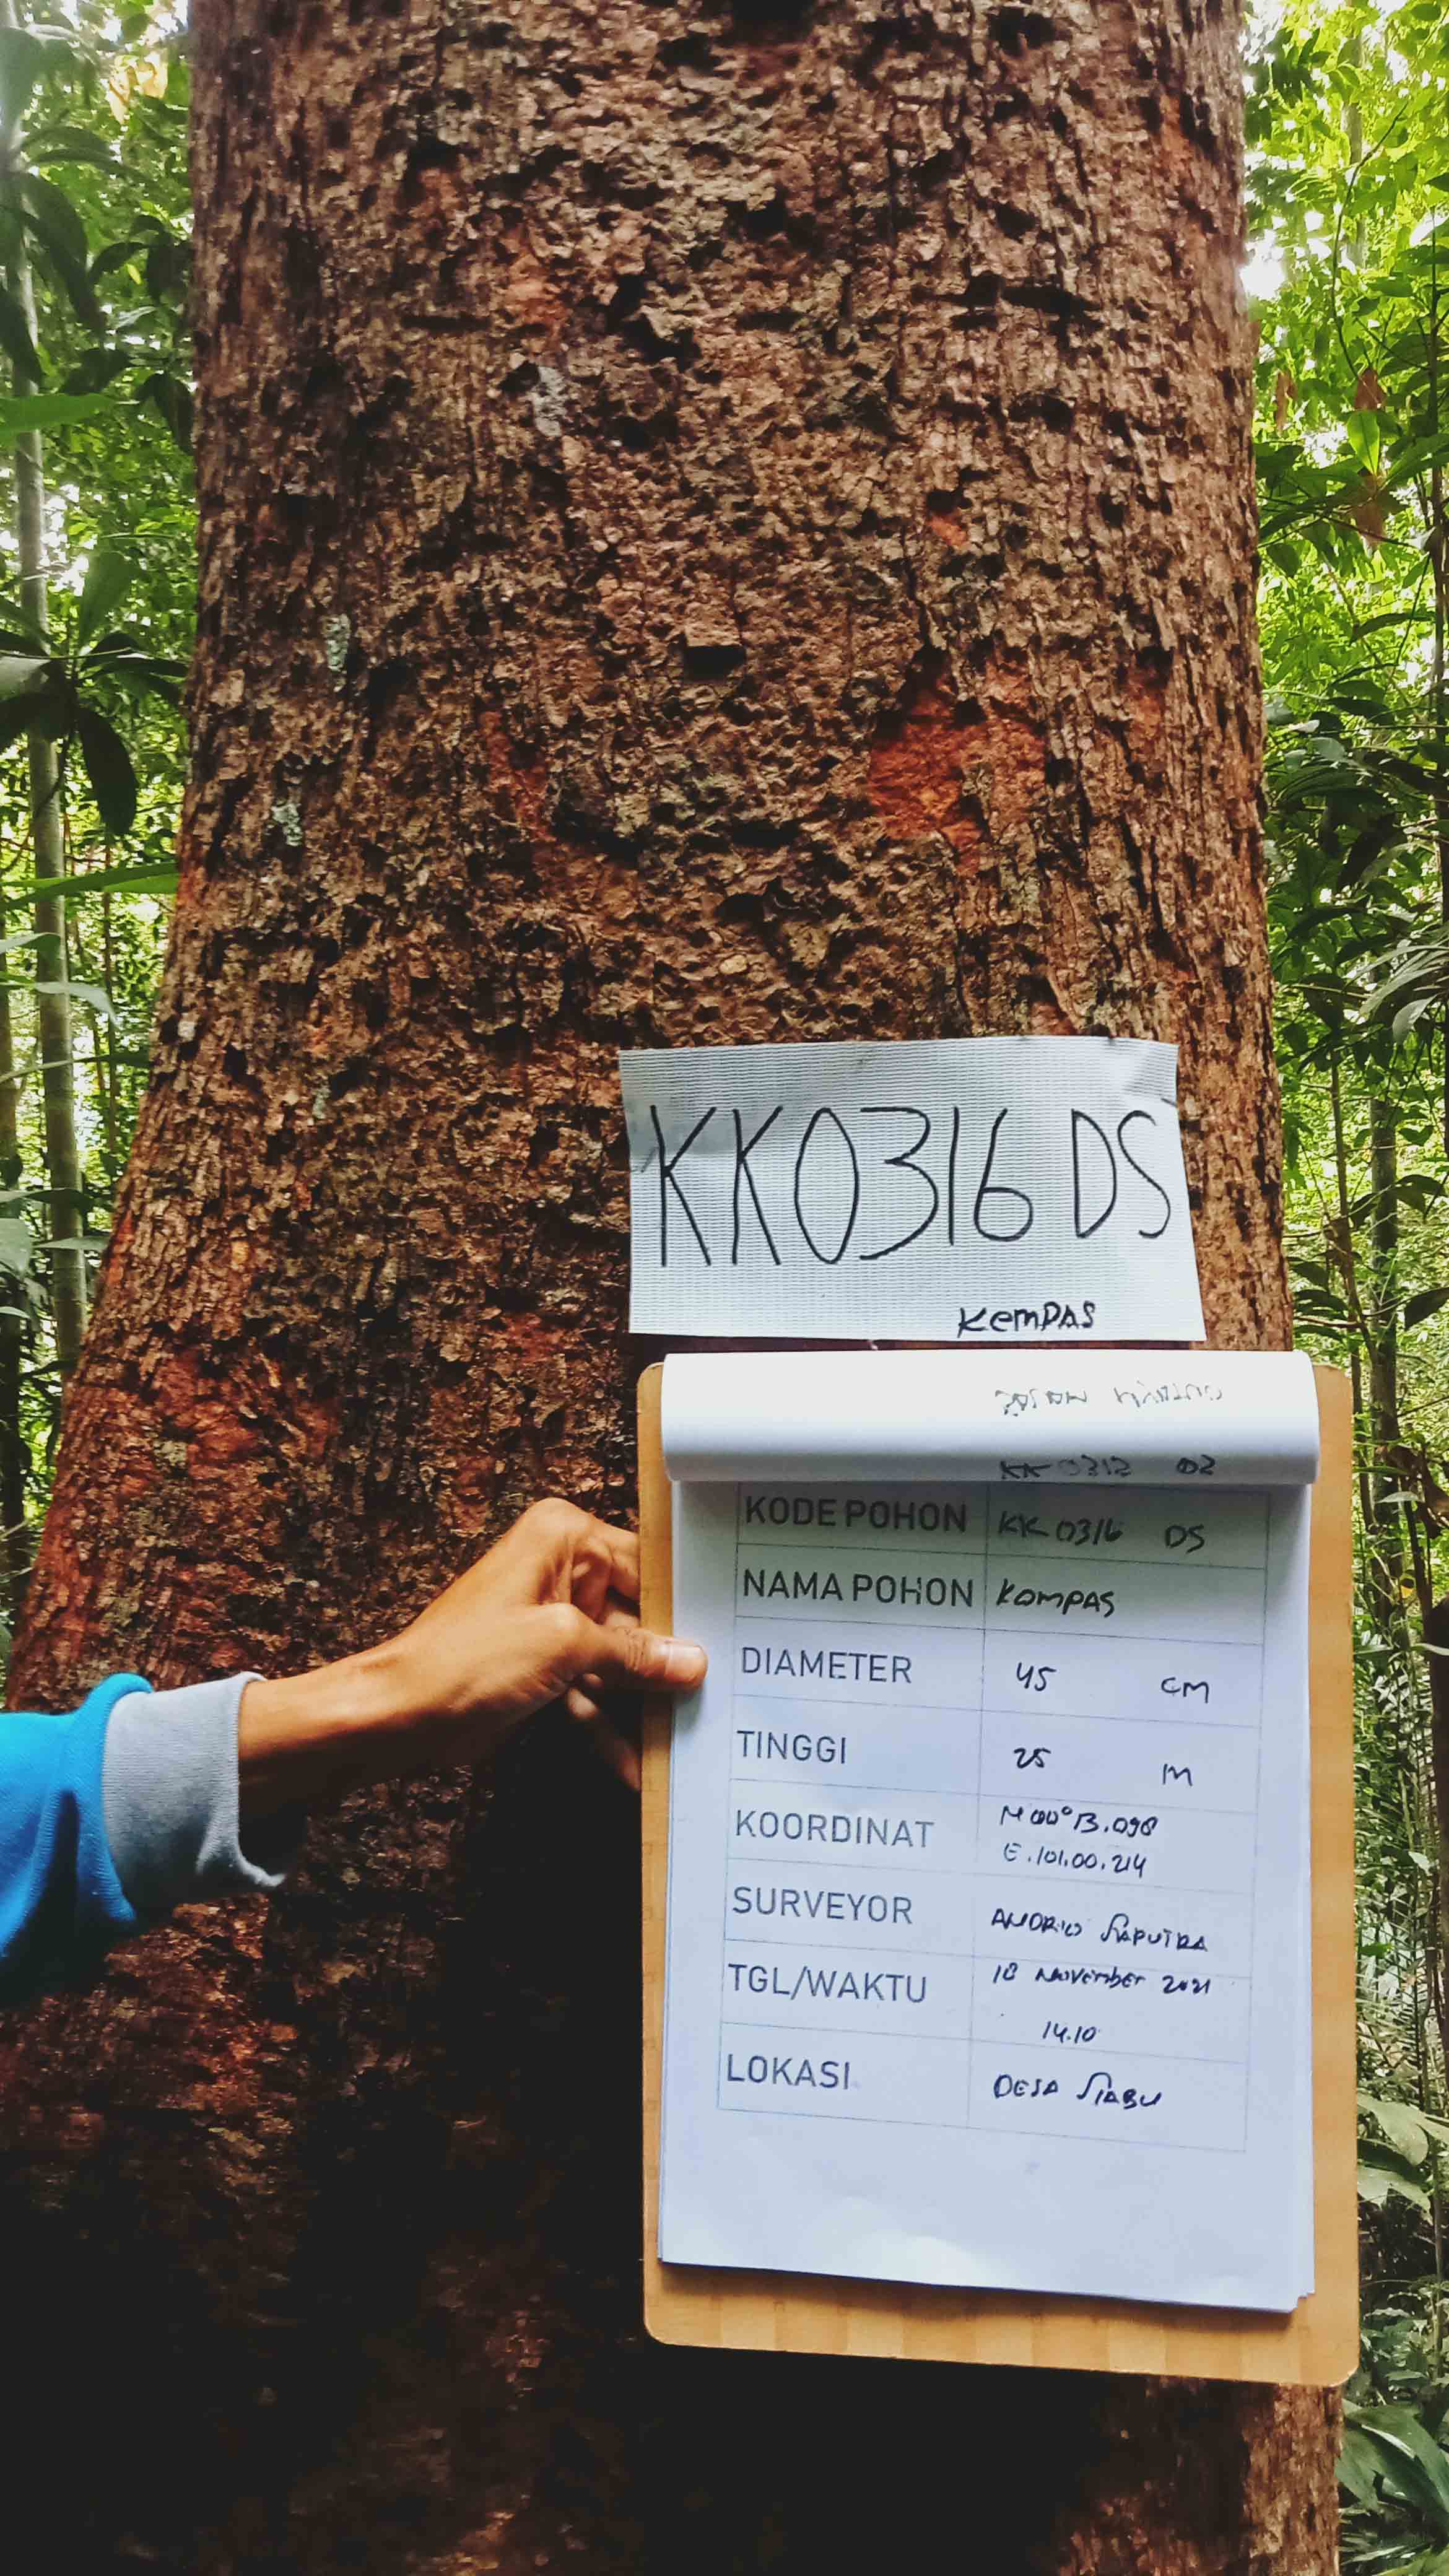 KK0316 DS
KemPAS
KODE POHON KK 0316 DS
NAMA POHON KOMPAS
DIAMETER 45 CM
TINGGI 25 M
KOORDINAT N 00°13.098
E.101.00.214
SURVEYOR SAPUTRA
TGL/WAKTU 18 November 2021
14.10
LOKASI DESA SIABU